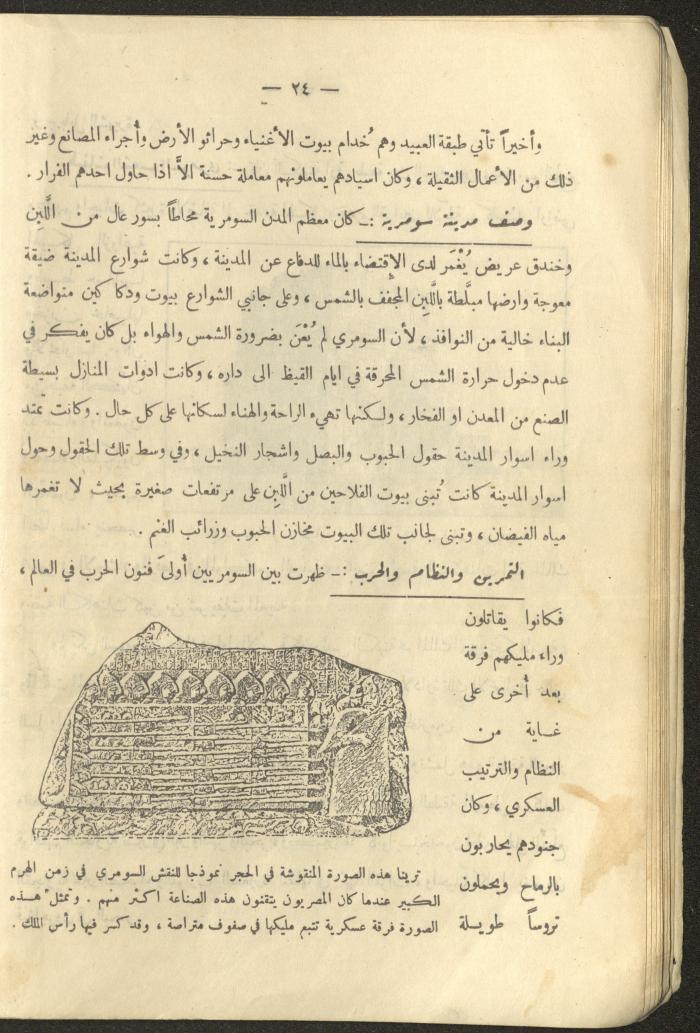 — ٢٤ —
وأخيراً تأتي طبقة العبيد وهم خُدام بيوت الأغنياء وحراثو الأرض وأُجراء المصانع وغير
ذلك من الأعمال الثقيلة ، وكان اسيادهم يعاملونهم معاملة حسنة الاَّ اذا حاول احدهم الفرار .
وصف مدينة سومرية :ـ كان معظم المدن السومرية محاطاً بسور عال من اللَّبِن
وخندق عريض يُغْمَر لدى الإقتضاء بالماء للدفاع عن المدينة ، وكانت شوارع المدينة ضيقة
معوجة وارضها مبلَّطة باللَّبِن المجفف بالشمس ، وعلى جانبي الشوارع بيوت ودكاكين متواضعة
البناء خالية من النوافذ ، لأن السومري لم يُعْنَ بضرورة الشمس والهواء بل كان يفكر في
عدم دخول حرارة الشمس المحرقة في ايام القيظ الى داره ، وكانت ادوات المنازل بسيطة
الصنع من المعدن او الفخار ، ولكنها تهيء الراحة والهناء لسكانها على كل حال . وكانت تمتد
وراء اسوار المدينة حقول الحبوب والبصل واشجار النخيل ، وفي وسط تلك الحقول وحول
اسوار المدينة كانت تُبنى بيوت الفلاحين من اللَّبِن على مرتفعات صغيرة بحيث لا تغمرها
مياه الفيضان ، وتبنى لجانب تلك البيوت مخازن الحبوب وزرائب الغنم .
التمرين والنظام والحرب :ـ ظهرت بين السومريين أولىَ فنون الحرب في العالم ،
فكانوا يقاتلون
وراء مليكهم فرقة
بعد أُخرى على
غاية من
النظام والترتيب
العسكري ، وكان
جنودهم يحاربون
بالرماح ويحملون
تروساً طويلة
ترينا هذه الصورة المنقوشة في الحجر نموذجا للنقش السومري في زمن الهرم
الكبير عندما كان المصريون يتقنون هذه الصناعة اكثر منهم . وتمثل هذه
الصورة فرقة عسكرية تتبع مليكها في صفوف متراصة ، وقد كسر فيها رأس الملك .